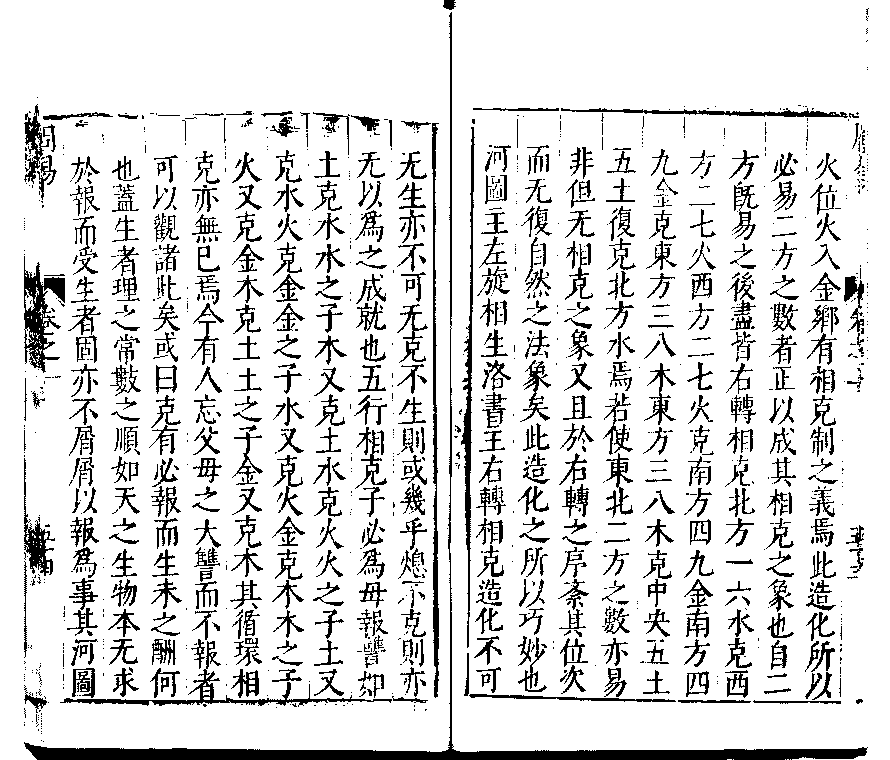 火位火入金鄉有相克制之義焉此造化所以
必易二方之數者正以成其相克之象也自二
方旣易之後盡皆右轉相克北方一六水克西
方二七火西方二七火克南方四九金南方四
九金克東方三八木東方三八木克中央五土
五土復克北方水焉若使東北二方之數亦易
非但无相克之象又且於右轉之序紊其位次
而无復自然之法象矣此造化之所以巧妙也
河圖主左旋相生洛書主右轉相克造化不可
无生亦不可无克不生則或幾乎熄不克則亦
无以爲之成就也五行相克子必爲母報讐如
土克水水之子木又克土水克火火之子土又
克水火克金金之子水又克火金克木木之子
火又克金木克土土之子金又克木其循環相
克亦無已焉今有人忘父母之大讐而不報者
可以觀諸此矣或曰克有必報而生未之酬何
也蓋生者理之常數之順如天之生物本无求
於報而受生者固亦不屑屑以報爲事其河圖
周易
卷之一